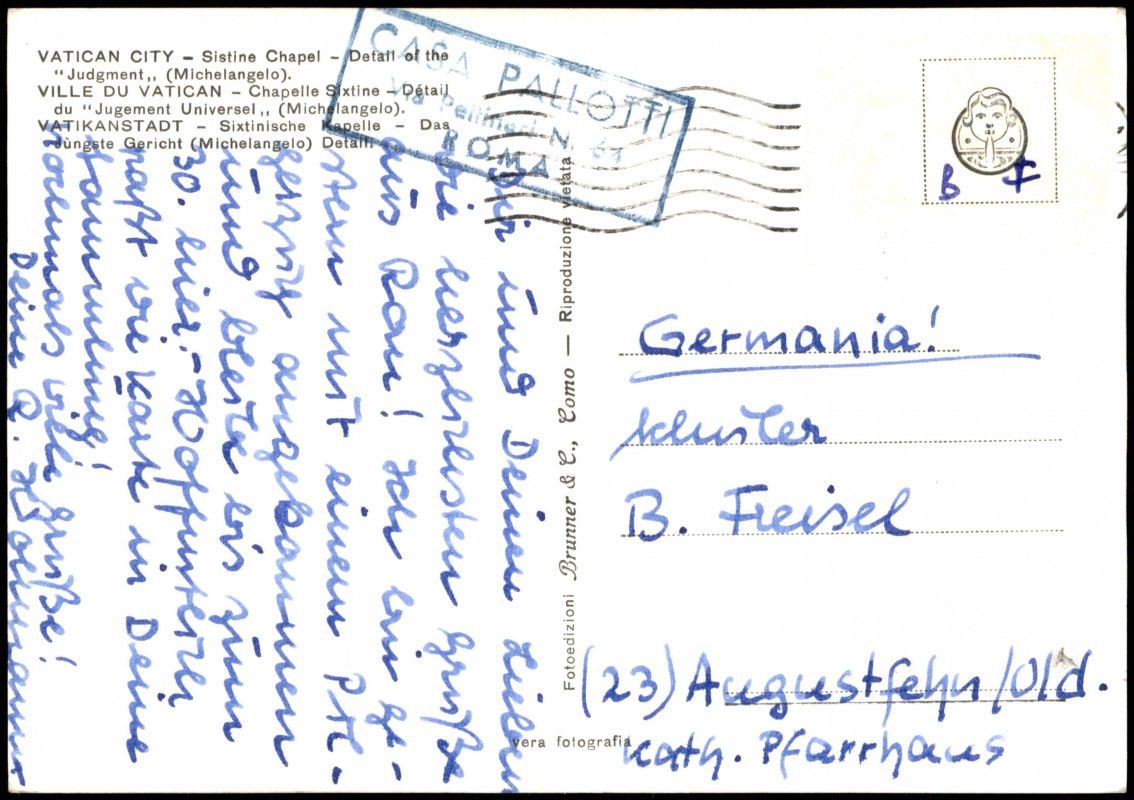 VATICAN CITY – Sistine Chapel – Detail of the
"Judgment„ (Michelangelo).
VILLE DU VATICAN – Chapelle Sixtine – Détail
du "Jugement Universel„ (Michelangelo).
VATIKANSTADT – Sixtinische Kapelle – Das
Jüngste Gericht (Michelangelo) Detail.
CASA PALLOTTI
Via Pettinari N. 64
ROMA
Dir und Deinen Lieben
die herzlichsten Grüße
aus Rom! Ich bin ge-
stern mit einem
gerzug angekommen
und bleibe bis zum
30. hier. – Hoffentlich
paßt die Karte in Deine
Sammlung!
Nochmals viele Grüße!
Deine A.
Fotoedizioni Brunner & C., Como — Riproduzione vietata
vera fotografia
B F
Germania!
B. Freisel
(23) Augustfehn/Old.
Kath. Pfarrhaus